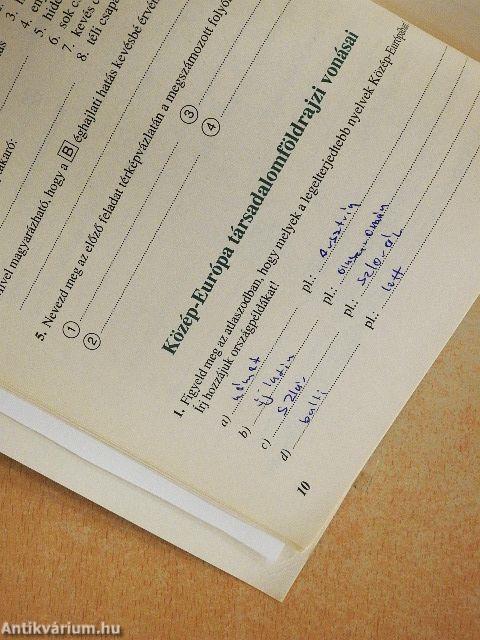 3. h
4. en
5. hide
6. sok c
7. kevés c
8. téli csapa
akaró:
ivel magyarázható, hogy a B éghajlati hatás kevésbé érvé
5. Nevezd meg az előző feladat térképvázlatán a megszámozott folyó
1 3
2 4
Közép-Európa társadalomföldrajzi vonásai
1. Figyeld meg az atlaszodban, hogy melyek a legelterjedtebb nyelvek Közép-Európába
Írj hozzájuk országpéldákat!
a) német pl.: ausztria
b) Új latin pl.:
c) szláv pl.: szlovák
d) balti pl.: lett
10
Antikvárium.hu